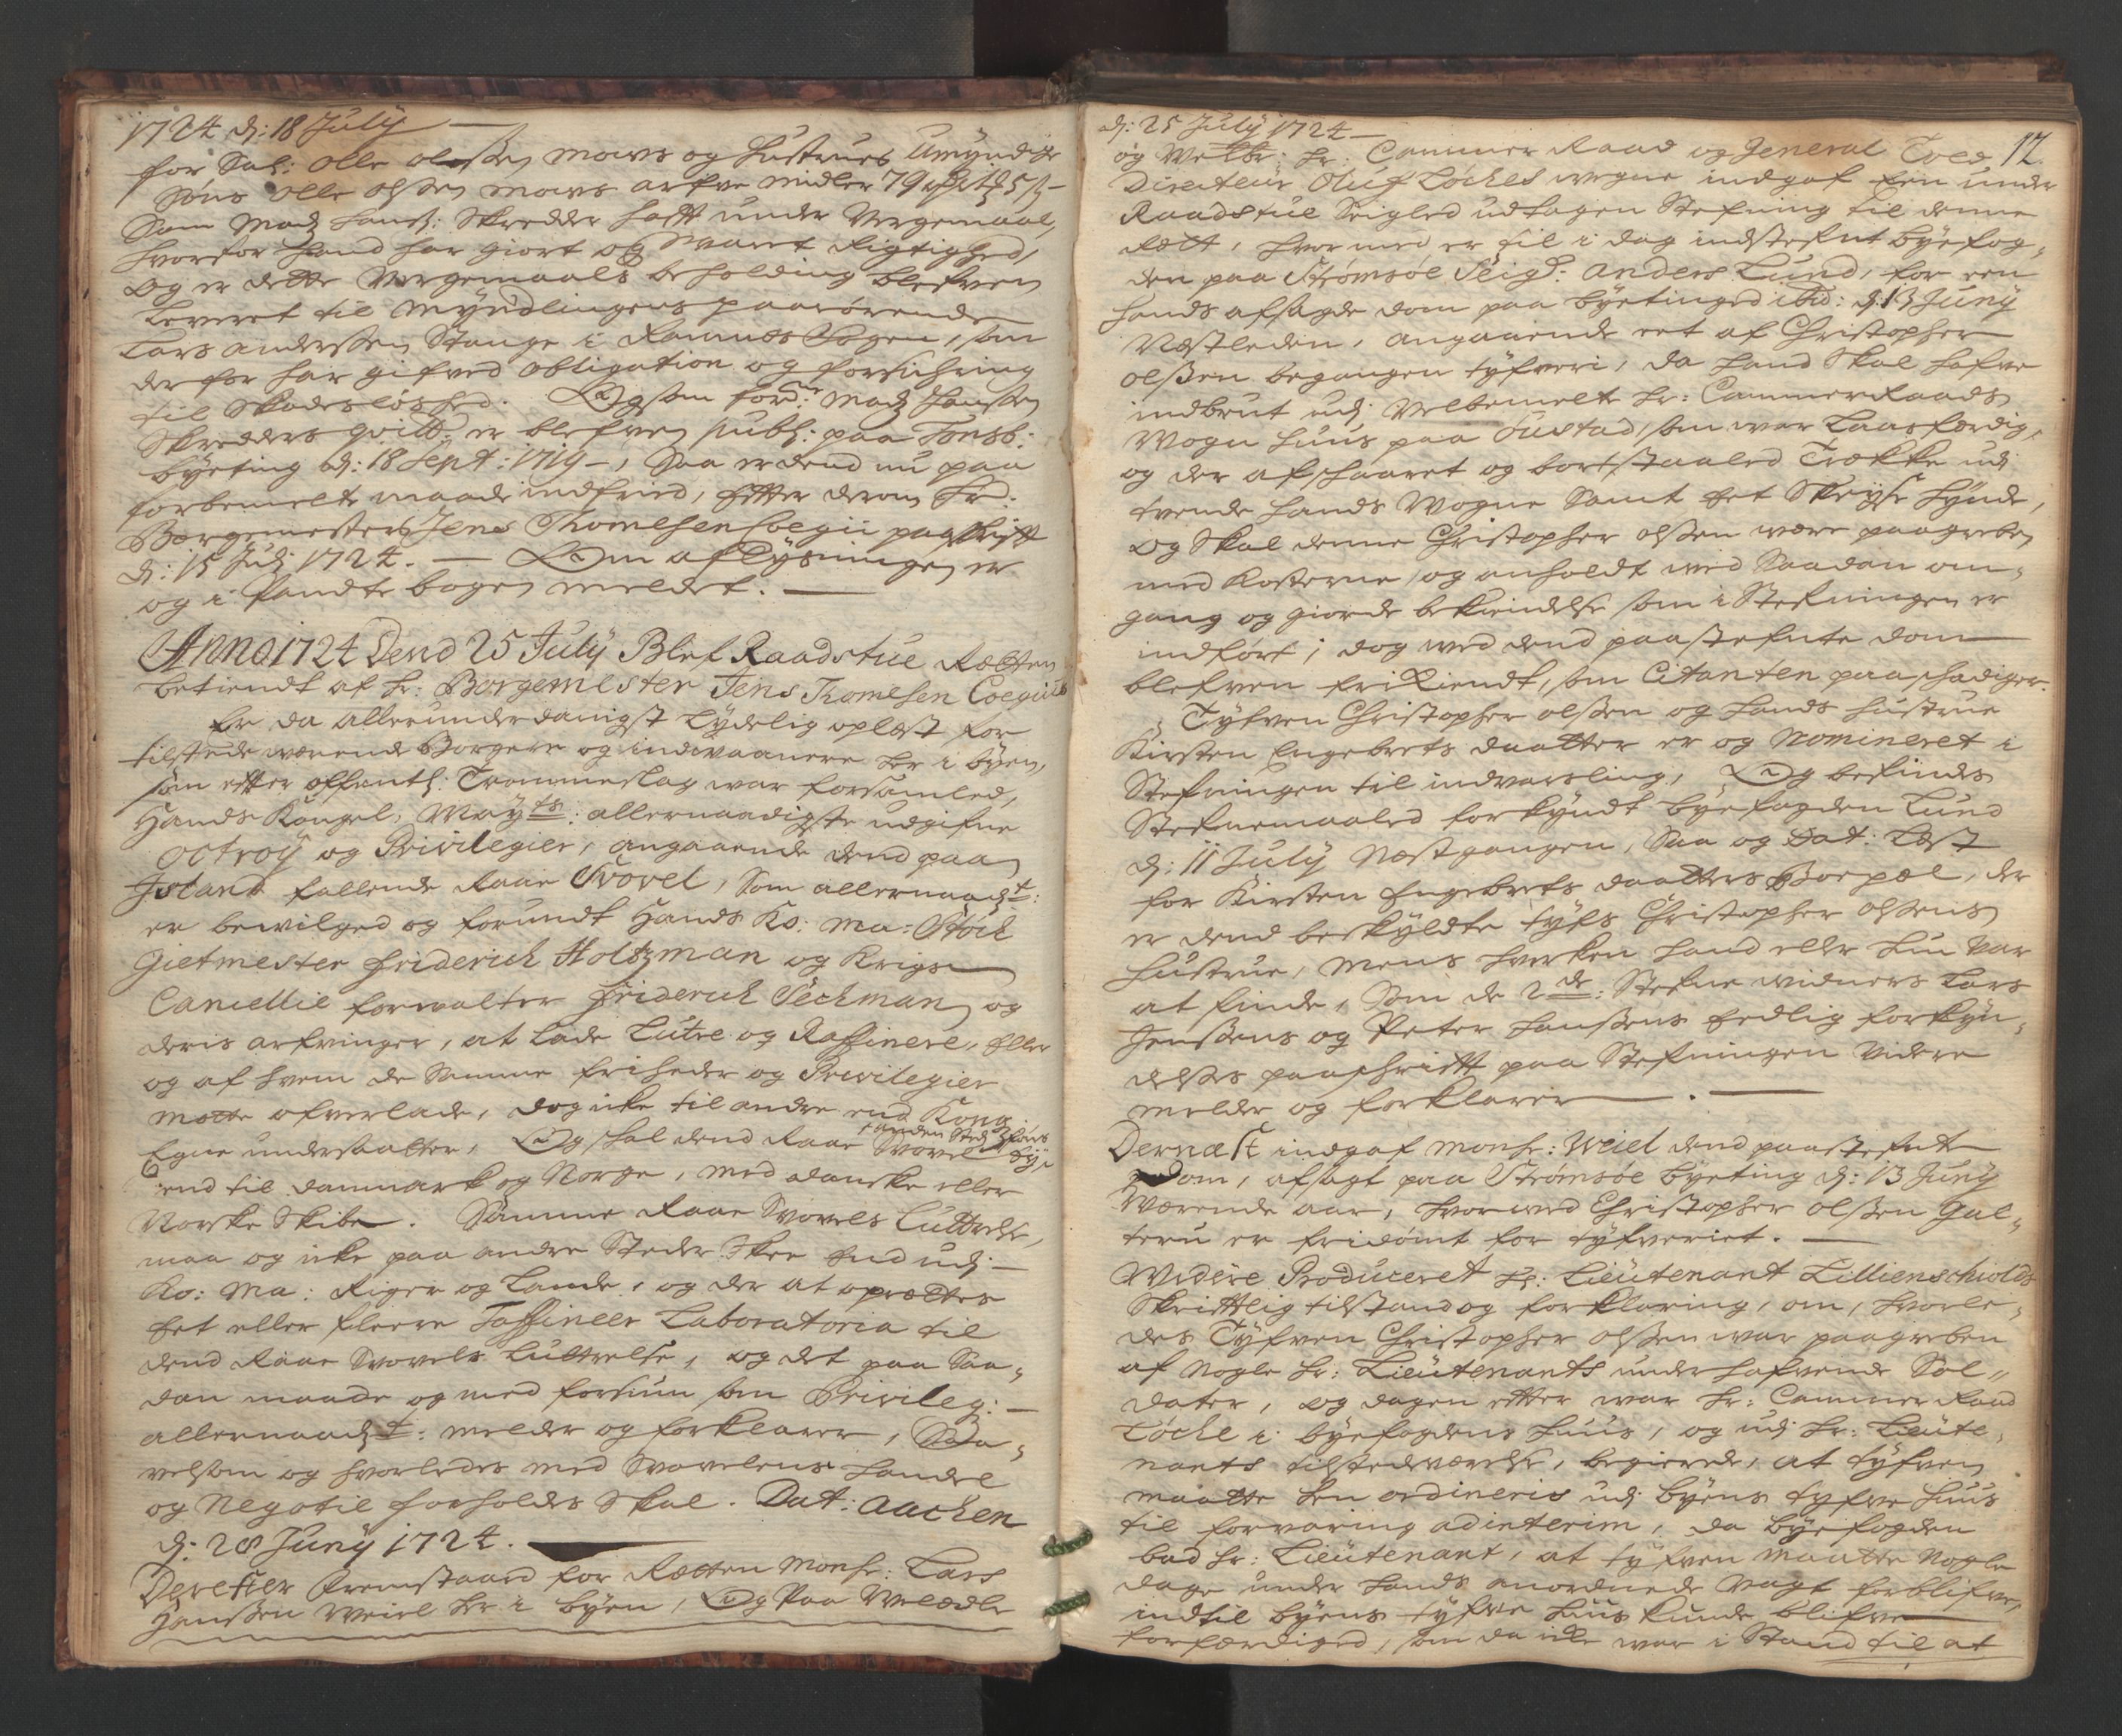 1724 d: 18 July
for Sal: Olle olssen mows og Hustrues Umyndige
Søns Olle olssen mows arfve midler 79
Som Mads Hanss: Skredder hafft under Vergemaal,
hvorfor hand har giort og Svaret Rigtighed,
og er dette Vergemaals beholding blefven
Leveret til Myndlingens paarørende
Lars anderssen Stange i Ramnes Sogen, som
derfor har gifved obligation og forsickring
til Skadesløshed. Ligesom for: Mads Hanssen
Skredders er blefven publ: paa Tønsb:
byeting d: 18 Sept: 1719, Saa er dend nu paa
forbemelte maade indfried, efter derom Hr.
Borgemesters Jens Thomesen Coegii paaskrift
d: 15 Julj 1724. Om aflysningen er
og i Pandte bogen meldet.
Anno 1724 Dend 25 July Blef Raadstue Retten
betiendt af Hr: Borgemester Jens Thomesen Coegius
Er da allerunderdanigst Lydelig oplæst for
tilstedeværende Borgere og indvaanere her i byen,
som efter offentl: Trommeslag war forsamled,
Hands Kongel: Mayts: allernaadigste udgifne
octroy og Privilegier, angaaende dend paa
Jsland fallende Raae Svovel, som allernaadt:
er bewilged og forundt Hands Ko: Ma: Stöck
Gietmester Friderich Holtzman og Krigs
Cancellie forvalter Friderich Sechman og
deris arfvinger, at lade Lutre og Raffinere, Eller
og af hvem de Samme friheder og Privilegier
motte ofverlade, dog icke til andre end Kong
Egne undersaatter, Og skal dend Raae Svovel ey
anden Sted føris
end til danmark og Norge, med danske eller
Norske Skibe. Samme Raae Svovels Luttrelse,
maa og icke paa andre Steder Skee End udj
Ko: Ma: Riger og Lande, og der at oprættes
Et eller fleere Raffineer Laboratoria til
dend Raae Svovels Luttrelse, og det paa Saa„
dan maade og med forsiun som Privileg:
allernaadt: melder og forklarer, Saa„
velsom og hvorledes med Svovelens Handel
og Negotie forholdes Skal. Dat: Aachen
d: 28 Juny 1724.
Derefter fremstaaed for Retten Monsr: Lars
Hanssen Weiel her i byen, Og Paa Welædle
d: 25 July 1724
12.
og Welbr: Hr: Cammer Raad og General Told
Directeur Oluf Løches wegne indgaf Een under
Raadstue Seigled udtagen Stefning til denne
Rett, hvormed er til i dag indstefnt byefog„
den paa Strømsøe Seigr: Anders Lund, for een
hands afsagde dom paa byetinged ibid: d: 13 Juny
Næstleden, angaaende eet af Christopher
olssen begangen tyfveri, da hand Skal hafve
indbrut udj Velbemelte Hr: Cammer Raads
Wogn huus paa Sustad, som war Laasferdig,
og der afschaaret og bortstaaled Trække udj
tvende hands Wogne Samt Et Skeyse Hynde,
og Skal denne Christopher olssen were paagreben
med Kosterne, og anholdt med Saadan om„
gang og giorde bekiendelse som i Stefningen er
indført; dog wed dend paastefnte dom
blefven friKiendt, som Citanten paaschadiger.
Tyfven Christopher olssen og hands Hustrue
Kirsten Engebrets daatter er og Nomineret i
Stefningen til indvarsling, Og befindes
Stefnemaaled forkyndt byefogden Lund
d: 11 July Næst gangen, Saa og Dat: Læst
for Kirsten Engebrets daatters Boepæl, der
er dend beskyldte tyfs Christopher olssens
Hustrue, mens hverken hand eller hun var
at finde, som de 2de: Stefne widners Lars
Jenssens og Peter Hanssens Edlig forkyn„
delses paaschrifft paa Stefningen Videre
melder og forklarer.
Dernæst indgaf Monsr: Weiel dend paastefnte
Dom, afsagt paa Strømsøe byeting d: 13 Juny
Værende aar, hvorwed Christopher olssen Gul„
teru er fridømt for tyfveriet.
Widere Produceret Hr: Lieutenant Lillienschiolds
Skriftlig tilstand og forklaring, om, hvorle„
des Tyfven Christopher olssen war paagreben
af Nogle Hr: Lieutenants underhafvende Sol„
dater, og dagen etter war Hr: Cammer Raad
Løche i byefogdens Huus, og udj Hr: Lieute„
nants tilstedeværelse, begierede, at tyfven
maatte hen ordineris udj byens tyfve Huus
til forvaring ad interim, da byefogden
bad Hr: Lieutenant, at tyfven maatte Nogle
dage under hands anordnede Vagt forblifve,
indtil byens tyfve Huus kunde blifve
forferdiged, som da icke war i Stand til at